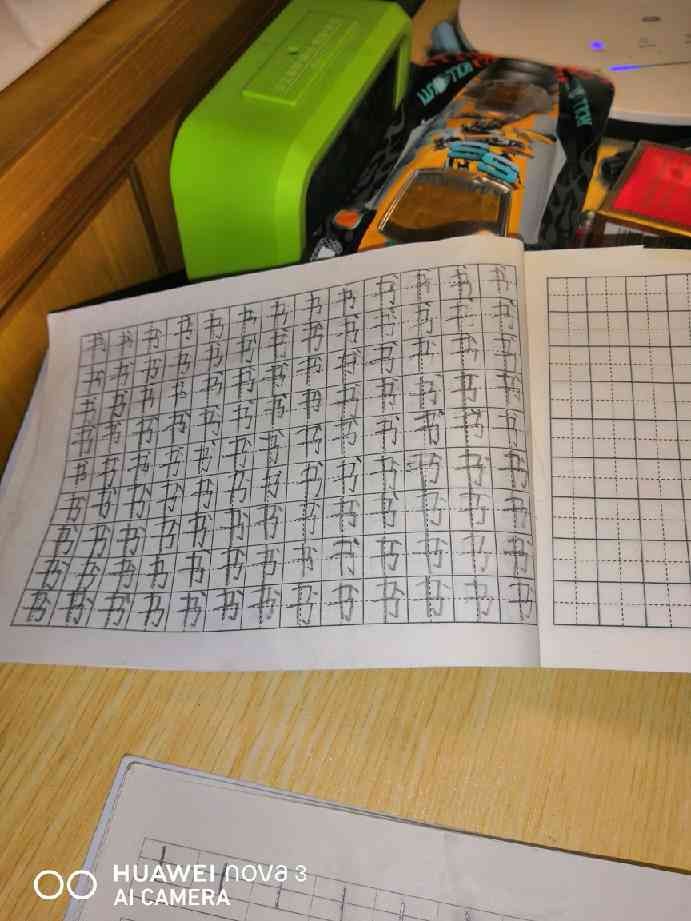 书书书书书书书书书书书书书
书书书书书书书书书书书书书
书书书书书书书书书书书书书
书书书书书书书书书书书书书
书书书书书书书书书书书书书
书书书书书书书书书书书书书
书书书书书书书书书书书书书
书书书书书书书书书书书书书
书书书书书书书书书书书书书
HUAWEI nova 3
AI CAMERA